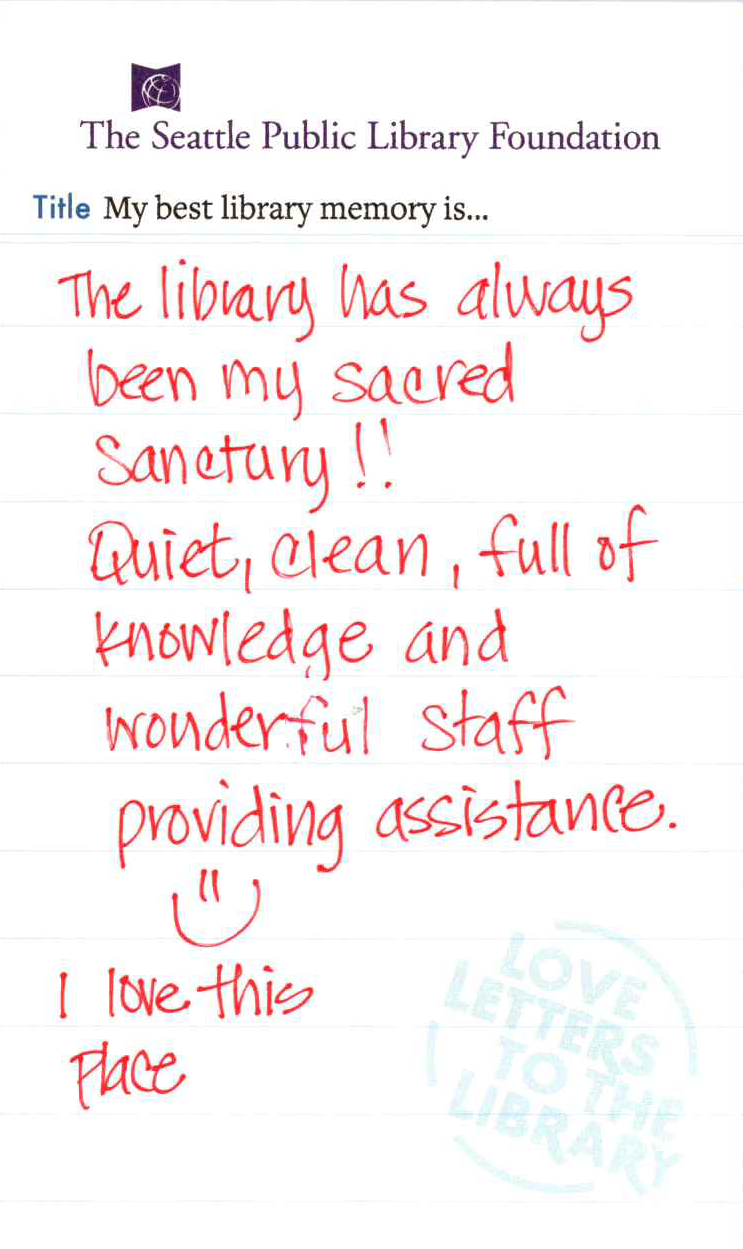 The Seattle Public Library Foundation
Title My best library memory is...
The library has always
been my sacred
Sanctury!!
Quiet, clean, full of
knowledge and
wonderful staff
providing assistance.
I love this
Place
LOVE
LETTERS
TO THE
LIBRARY